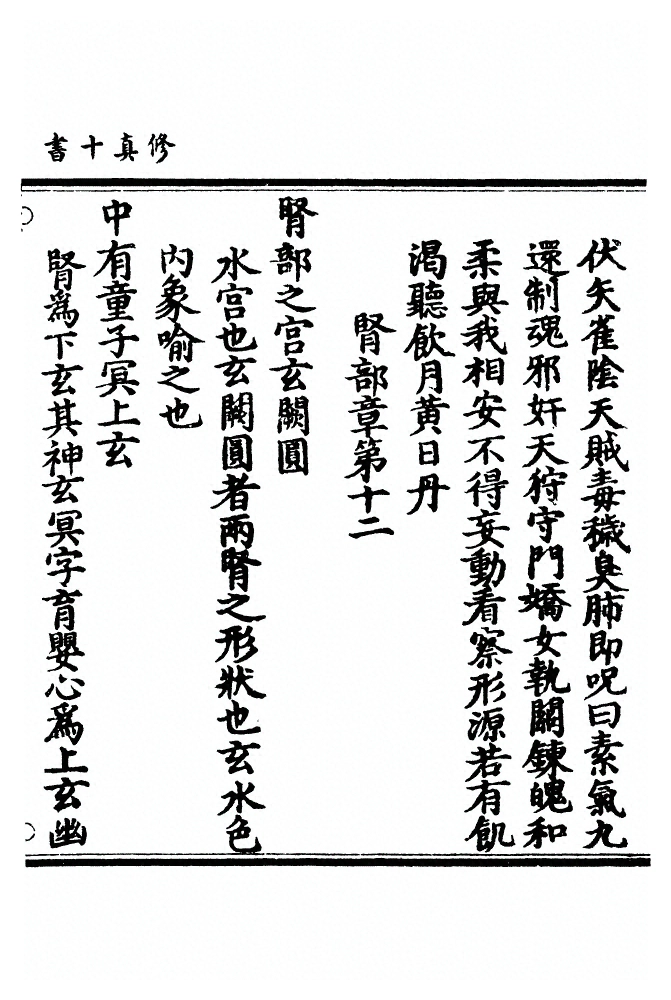 修真十書
伏矢雀陰天賊毒穢臭肺即呪曰素氣九
還制魂邪奸天狩守門嬌女執關鍊魄和
柔與我相安不得妄動看察形源若有飢
渴聽飲月黃日丹
腎部章第十二
腎部之宮玄闕圓
水宮也玄闕圓者兩腎之形狀也玄水色
內象喻之也
中有童子冥上玄
腎爲下玄其神玄冥字育嬰心爲上玄幽